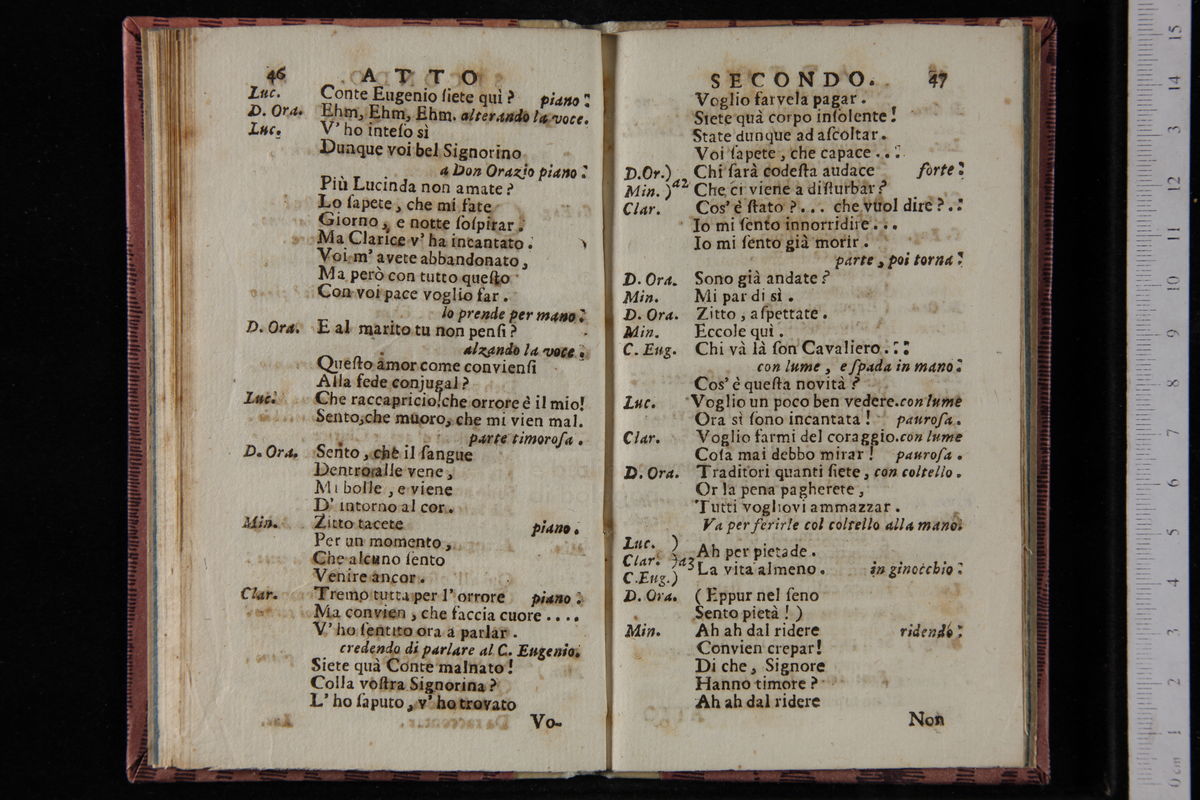 46 ATTO
Luc. Conte Eugenio ſiete quì ? piano.
D. Ora. Ehm, Ehm, Ehm. alterando la voce.
Luc. V' ho inteſo sì
Dunque voi bel Signorino
a Don Orazio piano.
Più Lucinda non amate ?
Lo ſapete, che mi fate
Giorno, e notte ſoſpirar.
Ma Clarice v' ha incantato.
Voi m' avete abbandonato,
Ma però con tutto queſto
Con voi pace voglio far.
lo prende per mano.
D. Ora. E al marito tu non penſi ?
alzando la voce.
Queſto amor come convienſi
Alla fede conjugal ?
Luc. Che raccapricio!che orrore è il mio!
Sento,che muoro, che mi vien mal.
parte timoroſa.
D. Ora. Sento, chè il ſangue
Dentro alle vene,
Mi bolle, e viene
D' intorno al cor.
Min. Zitto tacete piano.
Per un momento,
Che alcuno ſento
Venire ancor.
Clar. Tremo tutta per l' orrore piano.
Ma convien, che faccia cuore....
V' ho ſentito ora a parlar.
credendo di parlare al C. Eugenio.
Siete quà Conte malnato !
Colla voſtra Signorina ?
L' ho ſaputo, v' ho trovato
Vo-
SECONDO. 47
Voglio farvela pagar.
Siete quà corpo inſolente !
State dunque ad aſcoltar.
Voi ſapete, che capace...
D.Or.) Chi ſarà codeſta audace forte.
Min. )a2 Che ci viene a diſturbar ?
Clar. Cos' è ſtato ?... che vuol dire ?..
Io mi ſento innorridire...
Io mi ſento già morir.
parte, poi torna.
D. Ora. Sono già andate ?
Min. Mi par di sì.
D. Ora. Zitto, aſpettate.
Min. Eccole quì.
C. Eug. Chi và là ſon Cavaliero...
con lume, e ſpada in mano.
Cos' è queſta novità ?
Luc. Voglio un poco ben vedere.con lume
Ora sì ſono incantata ! pauroſa.
Clar. Voglio farmi del coraggio.con lume
Coſa mai debbo mirar ! pauroſa.
D. Ora. Traditori quanti ſiete, con coltello.
Or la pena pagherete,
Tutti vogliovi ammazzar.
Va per ferirle col coltello alla mano.
Luc. )
Clar. )a3 Ah per pietade.
C.Eug.) La vita almeno. in ginocchio.
D. Ora. ( Eppur nel ſeno
Sento pietà ! )
Min. Ah ah dal ridere ridendo.
Convien crepar!
Di che, Signore
Hanno timore ?
Ah ah dal ridere
Non
0 cm 1 2 3 4 5 6 7 8 9 10 11 12 13 14 15